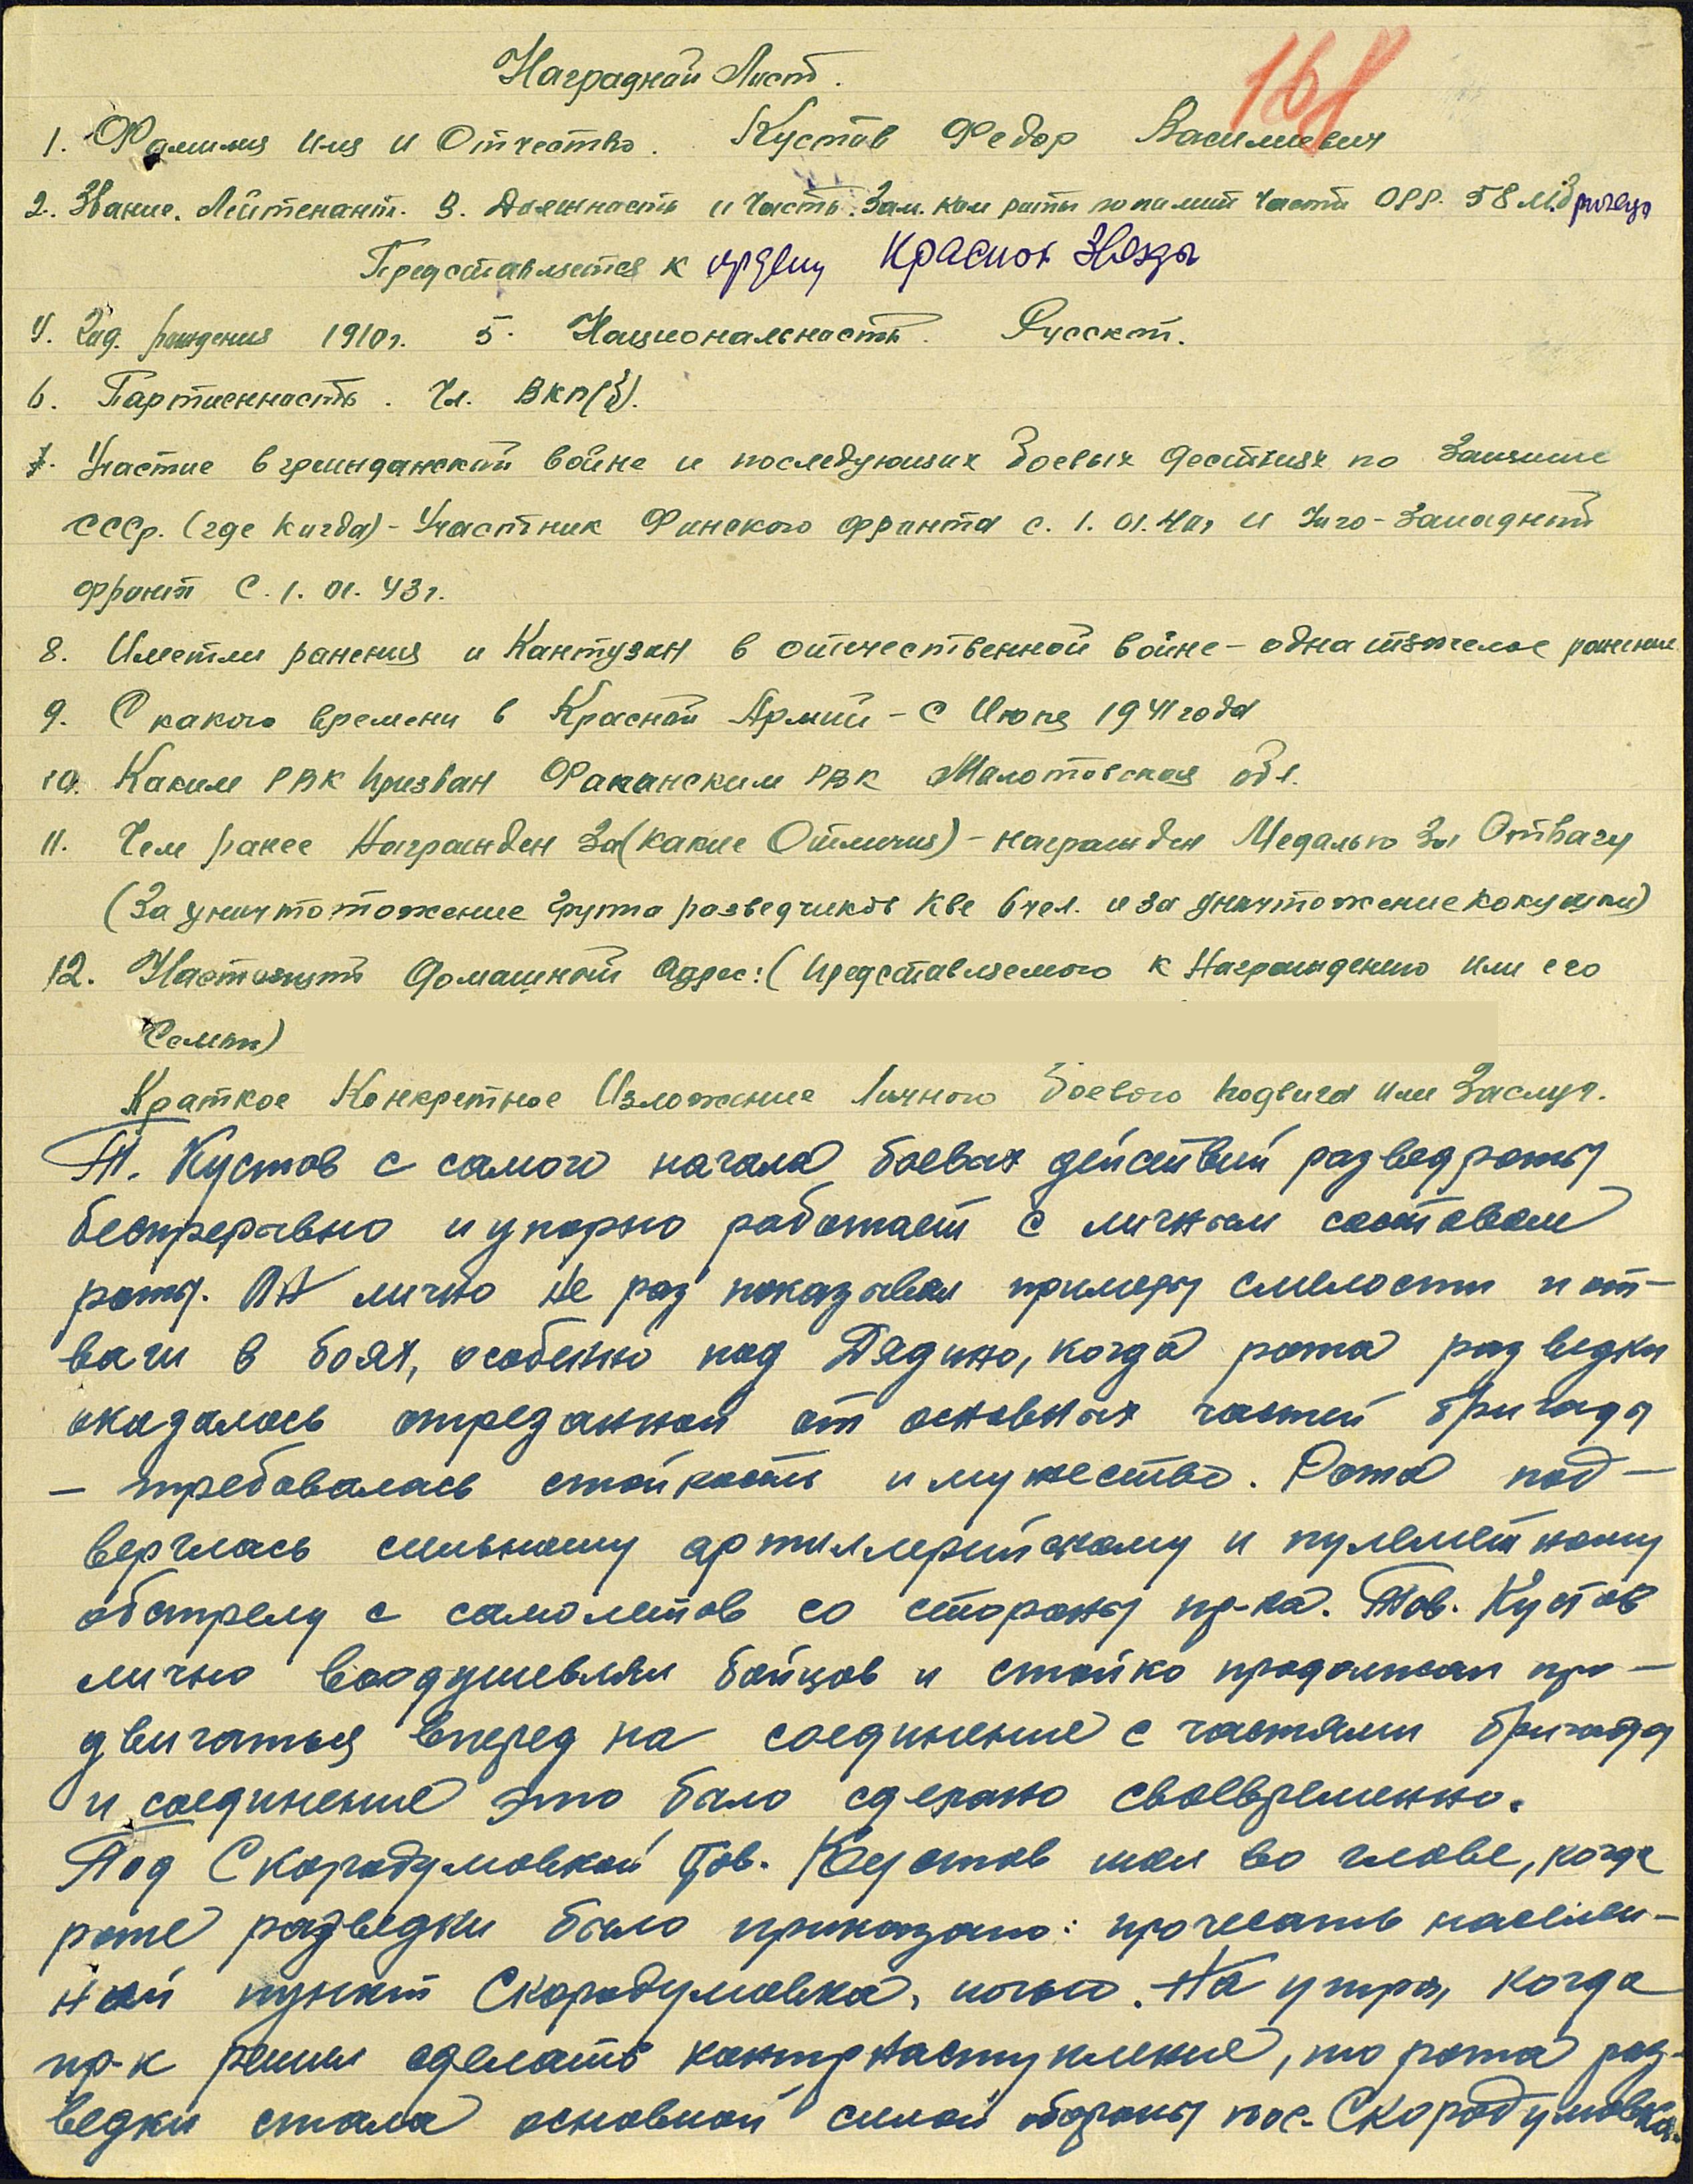 168
Наградной Лист.
1. Фамилия Имя и Отчество. Кустов Федор Василиевич
2. Звание. Лейтенант. 3. Должность и Часть. Зам. ком роты по полит части ОРР. 58 М.
Представляется к ордену Красной Звезды
4. Год. рождения 1910г. 5. Национальность. Русский.
6. Партиенность. Чл. ВКП(б).
7. Участие в гражданской войне и последующих боевых действиях по Защите
СССр. (где когда) - Участник Финского фронта с. 1. 01. 40г и Юго-Западной
фронт С. 1. 01. 43г.
8. Имеетли ранения и Контузии в отечественной войне - одна тяжелое ранение
9. С какого времени в Красной Армии - С Июня 1941 года
10. Каким РВК Призван РВК Молотовская обл.
11. Чем ранее Награжден За (какие Отличия) - награжден Медалью За Отвагу
(За уничтотожение группа разведчиков кве 6 чел. и за уничтожение)
12. Домашной адрес: (представляемого к Награждению или его
Семьи)
Краткое Конкретное Изложение Личного боевого подвига или Заслуг.
Т. Кустов с самого начала боевых действий разведроты
беспрерывно и упорно работает с личным составом
роты. Он лично не раз показывал примеры смелости и от-
ваги в боях, особенно под Дядино, когда рота разведки
оказалась отрезанной от основных частей бригады
- требовалась стойкость и мужество. Рота под-
верглась сильному артиллерийскому и пулеметному
обстрелу с самолетов со стороны пр-ка. Тов. Кустов
лично воодушевлял бойцов и стойко продолжал про-
двигаться вперед на соединение с частями бригады
и соединение это было сделано своевременно.
Под Скородумовкой Тов. Кустов шел во главе, когда
роте разведки было приказано: прочесать населен-
ный пункт Скородумовка, ночью. На утро, когда
пр-к решил сделать контрнаступление, то рота раз-
ведки стала основной силой обороны пос. Скородумовка.